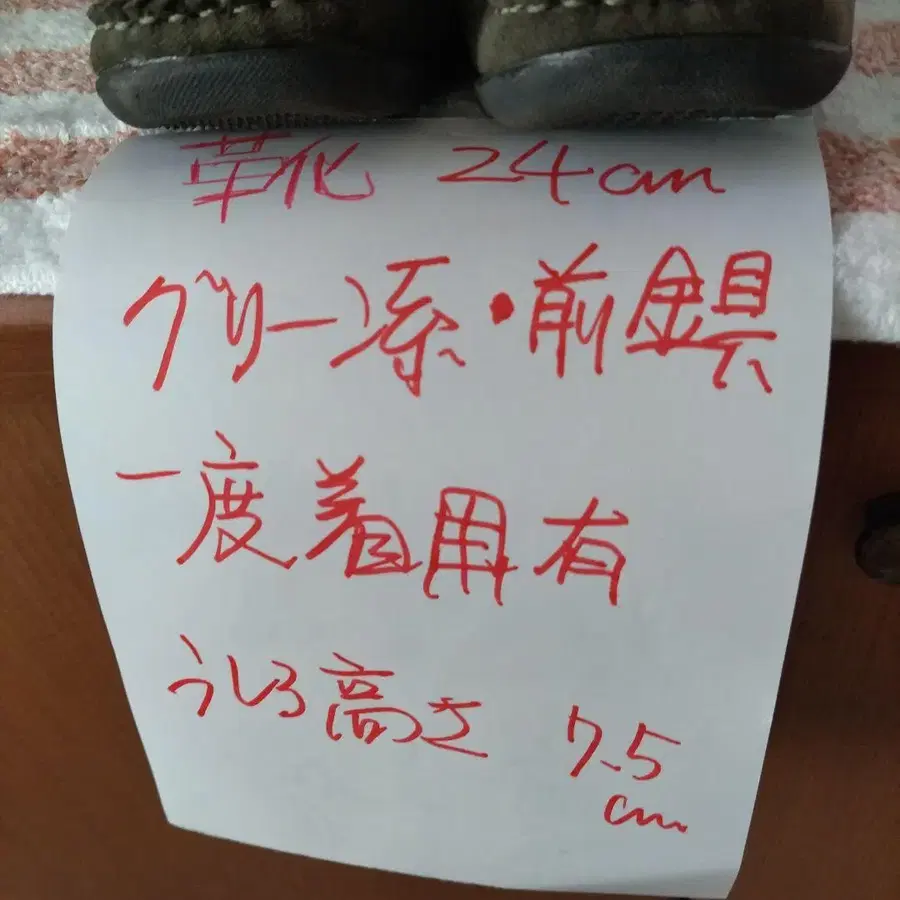 靴 24cm
グリー系・前金具
一度着用有
うしろ高さ 7.5
cm